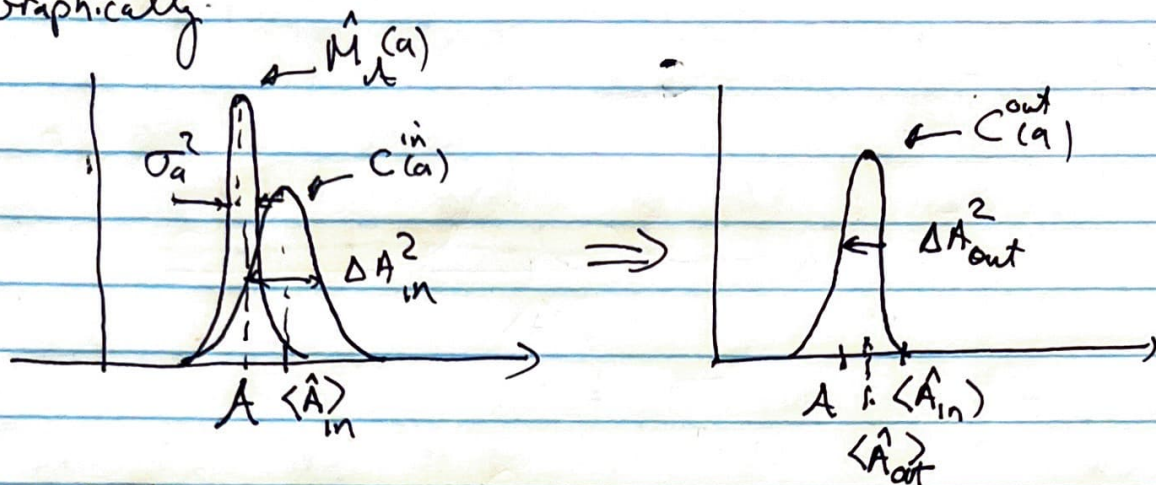 Graphically:
M̂_A(a)
σ_a²
C^in(a)
ΔA²_in
A ⟨Â⟩_in
⇒
C^out(a)
ΔA²_out
A ⟨Â_in⟩
⟨Â_out⟩